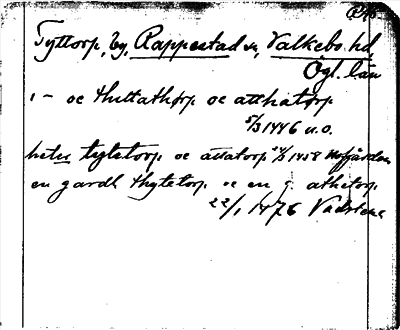 Tyttorp, by, Rappestad sn, Valkebo hd,
Ögl. län
i — oc thittathorp oc atthatorp
5/3 1446 u.o.
heter tytetorp oc attatorp 1458
en gardh thytetorp oc en g. athetorp
22/1 1476 Vadstena